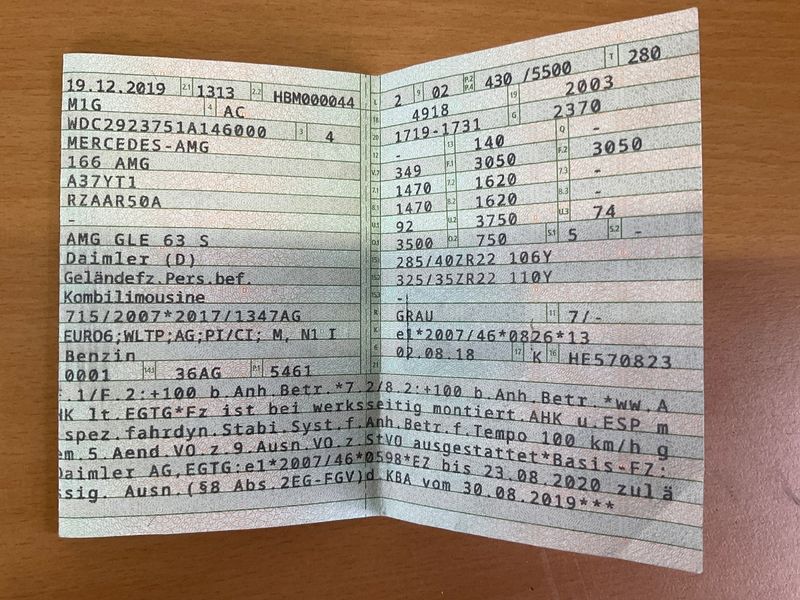 19.12.2019 2.1 1313 2.2 HBM000044
M1G 4 AC
WDC2923751A146000 3 4
MERCEDES-AMG
166 AMG
A37YT1
RZAAR50A
-
AMG GLE 63 S
Daimler (D)
Geländefz.Pers.bef.
Kombilimousine
715/2007*2017/1347AG
EURO6;WLTP;AG;PI/CI; M, N1 I
Benzin
0001 14.1 36AG P.1 5461
L 2 9 02 P.2 P.4 430 /5500 T 280
18 4918 19 2003
20 1719-1731 G 2370
12 - 13 140 Q -
V.7 349 F.1 3050 F.2 3050
7.1 1470 7.2 1620 7.3 -
8.1 1470 8.2 1620 8.3 -
U.1 92 U.2 3750 U.3 74
O.1 3500 O.2 750 S.1 5 S.2 -
15.1 285/40ZR22 106Y
15.2 325/35ZR22 110Y
15.3 -
R GRAU 11 7/-
K e1*2007/46*0826*13
6 02.08.18 17 K 16 HE570823
21
.1/F.2:+100 b.Anh.Betr.*7.2/8.2:+100 b.Anh.Betr.*ww.A
HK lt.EGTG*Fz ist bei werksseitig montiert.AHK u.ESP m
spez.fahrdyn.Stabi.Syst.f.Anh.Betr.f.Tempo 100 km/h g
em.5.Aend.VO.z.9.Ausn.VO.z.StVO ausgestattet*Basis-FZ:
Daimler AG,EGTG:e1*2007/46*0598*EZ bis 23.08.2020 zulä
ssig. Ausn.(§8 Abs.2EG-FGV)d.KBA vom 30.08.2019***